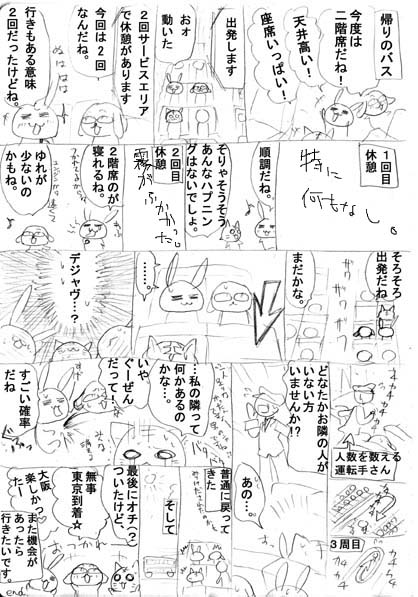 帰りのバス
今度は
二階席だね!
天井高い!
座席いっぱい!
出発します
おォ
動いた
2回サービスエリア
で休憩があります
今回は2回
なんだね。
行きもある意味
2回だったけどね。
1回目
休憩
特に
何もなし。
順調だね。
そりゃそうそう
あんなハプニン
グはないでしょ。
2回目
休憩
霧がふかかった。
2階席のが
寝れるね。
ゆれが
少ないの
かもね。
そろそろ
出発だね
ガヤ
ガヤ
まだかな。
……。
デジャヴ…?
カチカチ
人数を数える
運転手さん
3周目
カチ
カチ
カチ
どなたかお隣の人が
いない方
いませんか!?
あの…
…私の隣って
何かあるの
かな…。
いや
ぐーぜん
だって!
すごい確率
だね
普通に戻って
きた
そして
最後にオチ(?)
ついたけど、
無事
東京到着☆
おつかれー
大阪
楽しかっ
たー♡
また機会が
あったら
行きたいです。
end